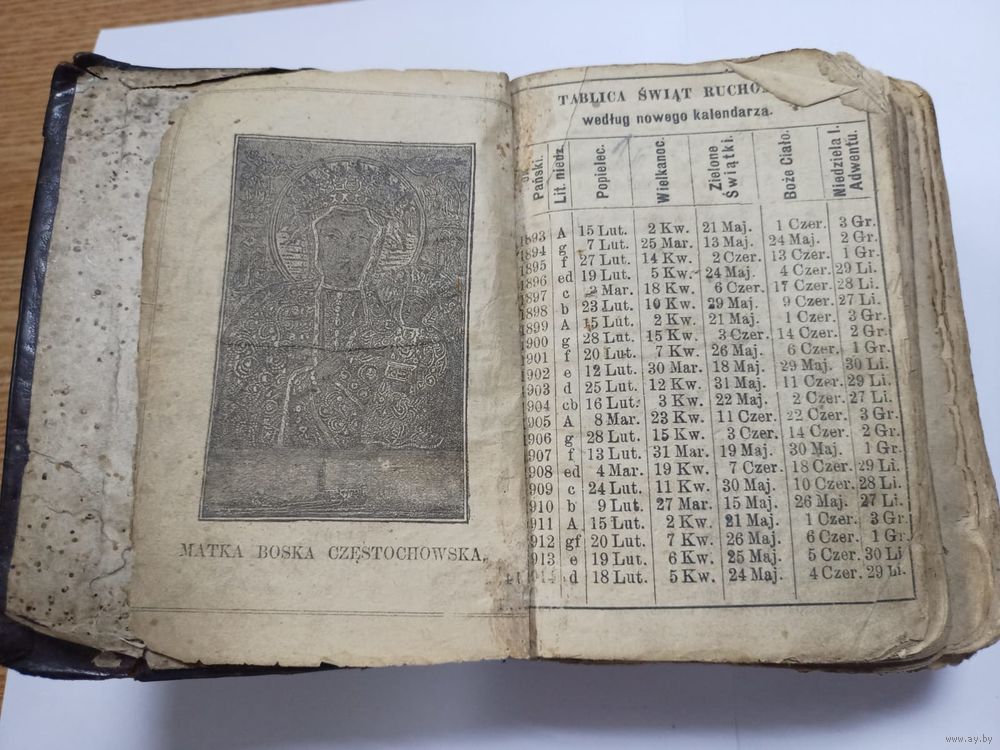 MATKA BOSKA CZĘSTOCHOWSKA.
TABLICA ŚWIĄT
według nowego kalendarza.
Pański. Lit. niedz. Popielec. Wielkanoc. Zielone Świątki. Boże Ciało. Niedziela I. Adwentu.
1893 A 15 Lut. 2 Kw. 21 Maj. 1 Czer. 3 Gr.
1894 g 7 Lut. 25 Mar. 13 Maj. 24 Maj. 2 Gr.
1895 f 27 Lut. 14 Kw. 2 Czer. 13 Czer. 1 Gr.
1896 ed 19 Lut. 5 Kw. 24 Maj. 4 Czer. 29 Li.
1897 c Mar. 18 Kw. 6 Czer. 17 Czer. 28 Li.
1898 b 23 Lut. 10 Kw. 29 Maj. 9 Czer. 27 Li.
1899 A 15 Lut. 2 Kw. 21 Maj. 1 Czer. 3 Gr.
900 g 28 Lut. 15 Kw. 3 Czer. 14 Czer. 2 Gr.
901 f 20 Lut. 7 Kw. 26 Maj. 6 Czer. 1 Gr.
902 e 12 Lut. 30 Mar. 18 Maj. 29 Maj. 30 Li.
903 d 25 Lut. 12 Kw. 31 Maj. 11 Czer. 29 Li.
904 cb 16 Lut. 3 Kw. 22 Maj. 2 Czer. 27 Li.
905 A 8 Mar. 23 Kw. 11 Czer. 22 Czer. 3 Gr.
906 g 28 Lut. 15 Kw. 3 Czer. 14 Czer. 2 Gr.
907 f 13 Lut. 31 Mar. 19 Maj. 30 Maj. 1 Gr.
908 ed 4 Mar. 19 Kw. 7 Czer. 18 Czer. 29 Li.
909 c 24 Lut. 11 Kw. 30 Maj. 10 Czer. 28 Li.
910 b 9 Lut. 27 Mar. 15 Maj. 26 Maj. 27 Li.
911 A 15 Lut. 2 Kw. 21 Maj. 1 Czer. 3 Gr.
912 gf 20 Lut. 7 Kw. 26 Maj. 6 Czer. 1 Gr.
913 e 19 Lut. 6 Kw. 25 Maj. 5 Czer. 30 Li
914 d 18 Lut. 5 Kw. 24 Maj. 4 Czer. 29 Li.
www.ay.by